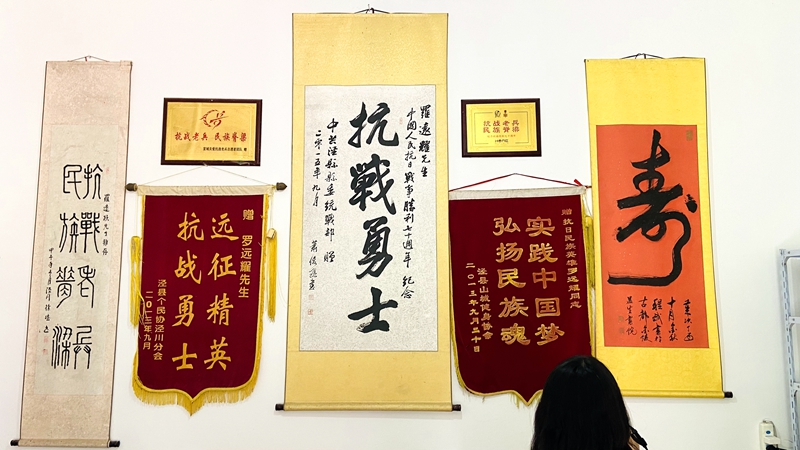 抗戰老兵
民族脊梁
抗战老兵 民族脊梁
赠 罗远耀先生
远征精英
抗战勇士
泾县个民协泾川分会
二〇一三年九月
羅遠耀先生
中國人民抗日戰争勝利七十週年 纪念
抗戰勇士
中共泾縣縣委統戰部 贈
二〇一五年九月
抗战老兵
民族脊梁
赠抗日民族英雄罗远耀同志
实践中国梦
弘扬民族魂
二〇一三年九月二十日
寿